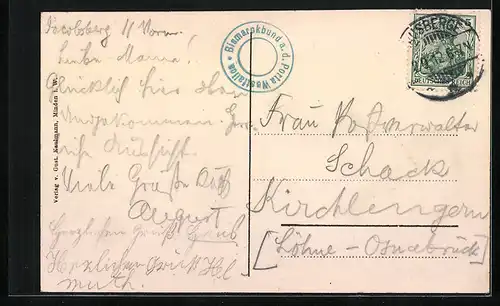 Jacobsberg 11 Vorm.
Liebe Mama!
Glücklich hier oben
angekommen. Herr-
liche Aussicht.
Viele Grüße Dein
August
Herzlichen Gruß
Herzlichen Gruß Hel
muth.
Verlag v. Gust. Mesmann, Minden i. W.
Bismarckbund a. d. Porta Westfalica
HAUSBERGE
DEUTSCHES REICH
5
Frau Postverwalter
Schack
Kirchlengern
[Löhne - Osnabrück]